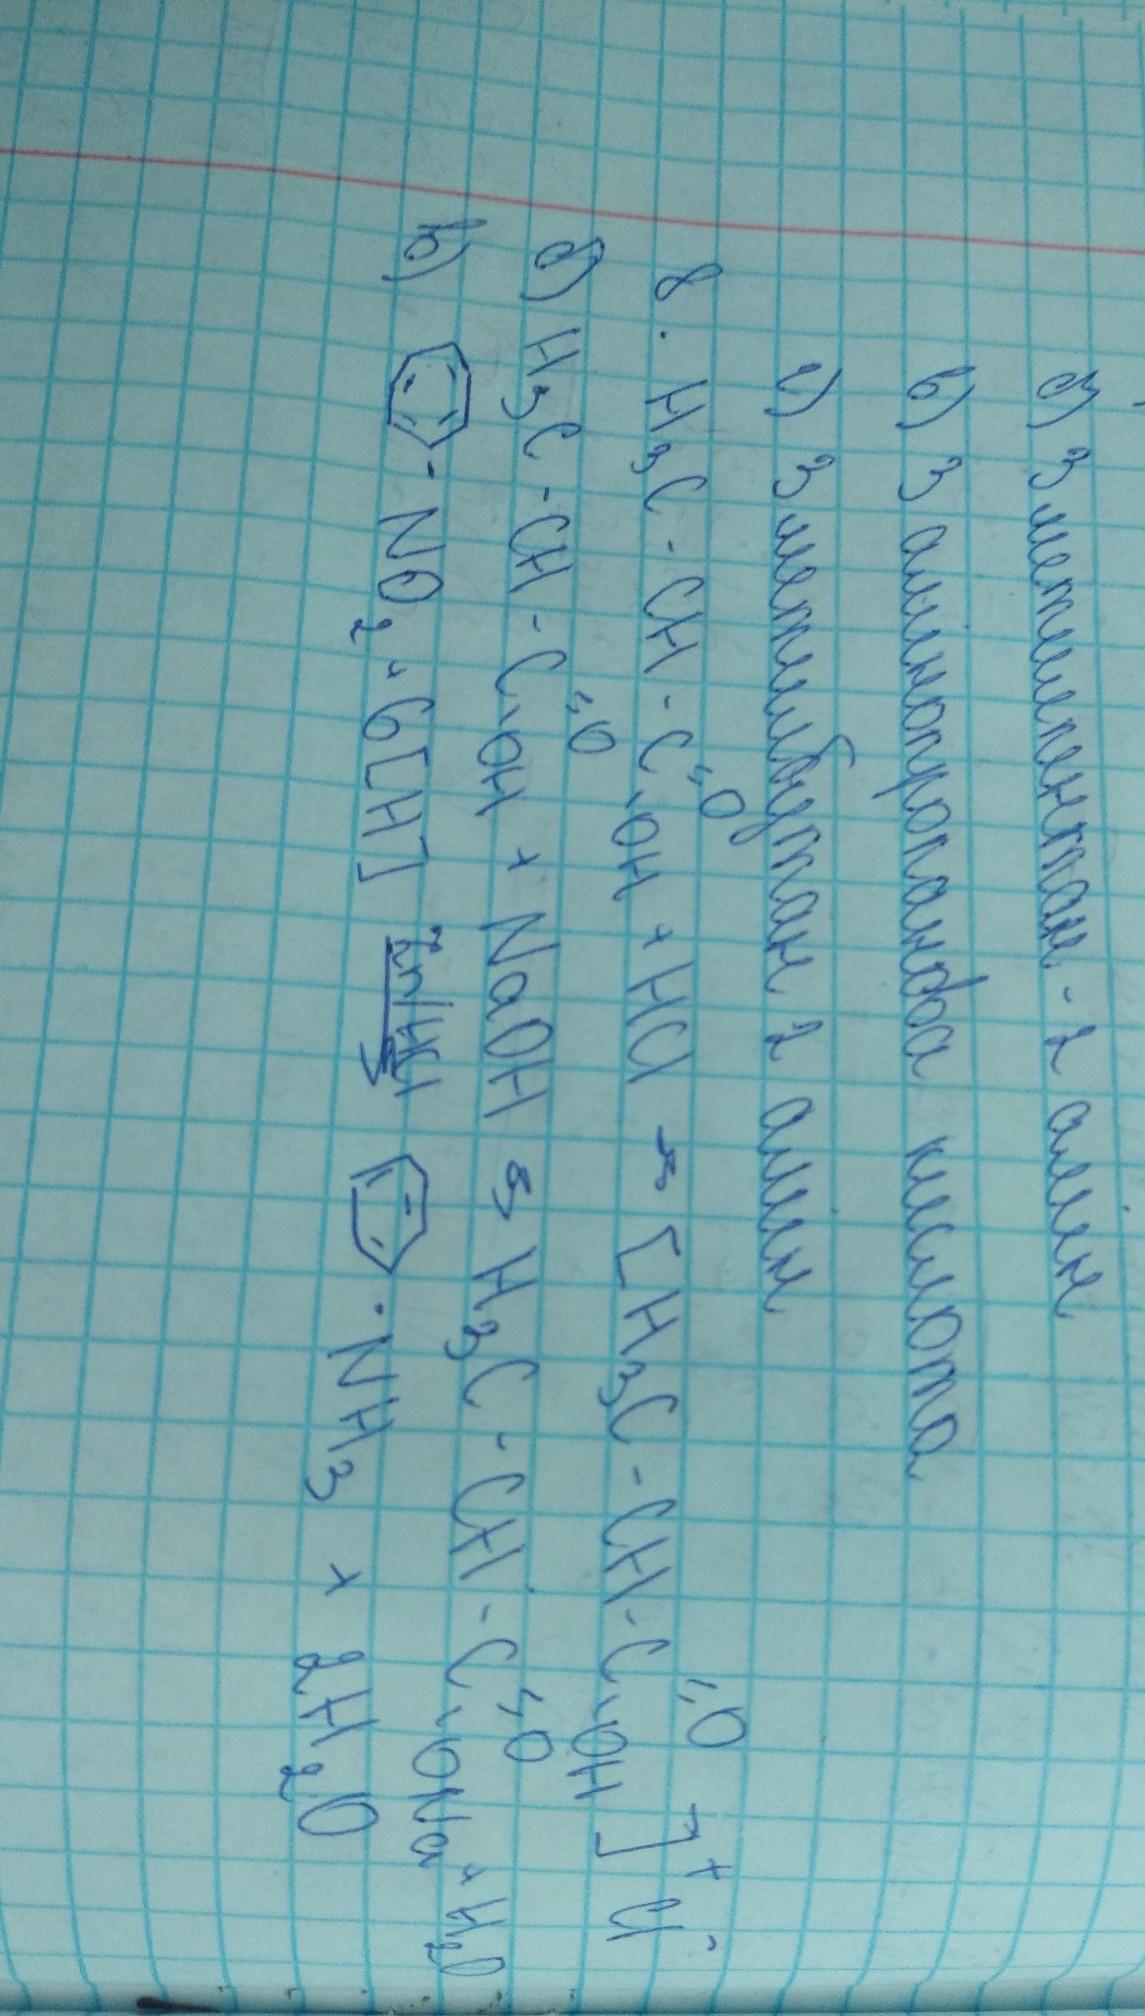 б) 3 метилпентан-2 амін
в) 3 амінопропанова кислота
г) 3 метилбутан 2 амін
8. H₃C - CH - C =O -OH + HCl → [H₃C - CH - C =O -OH]⁺ Cl⁻
б) H₃C - CH - C =O -OH + NaOH → H₃C - CH - C =O -ONa + H₂O
в) - NO₂ + 6[H] Zn/HCl → - NH₃ + 2H₂O